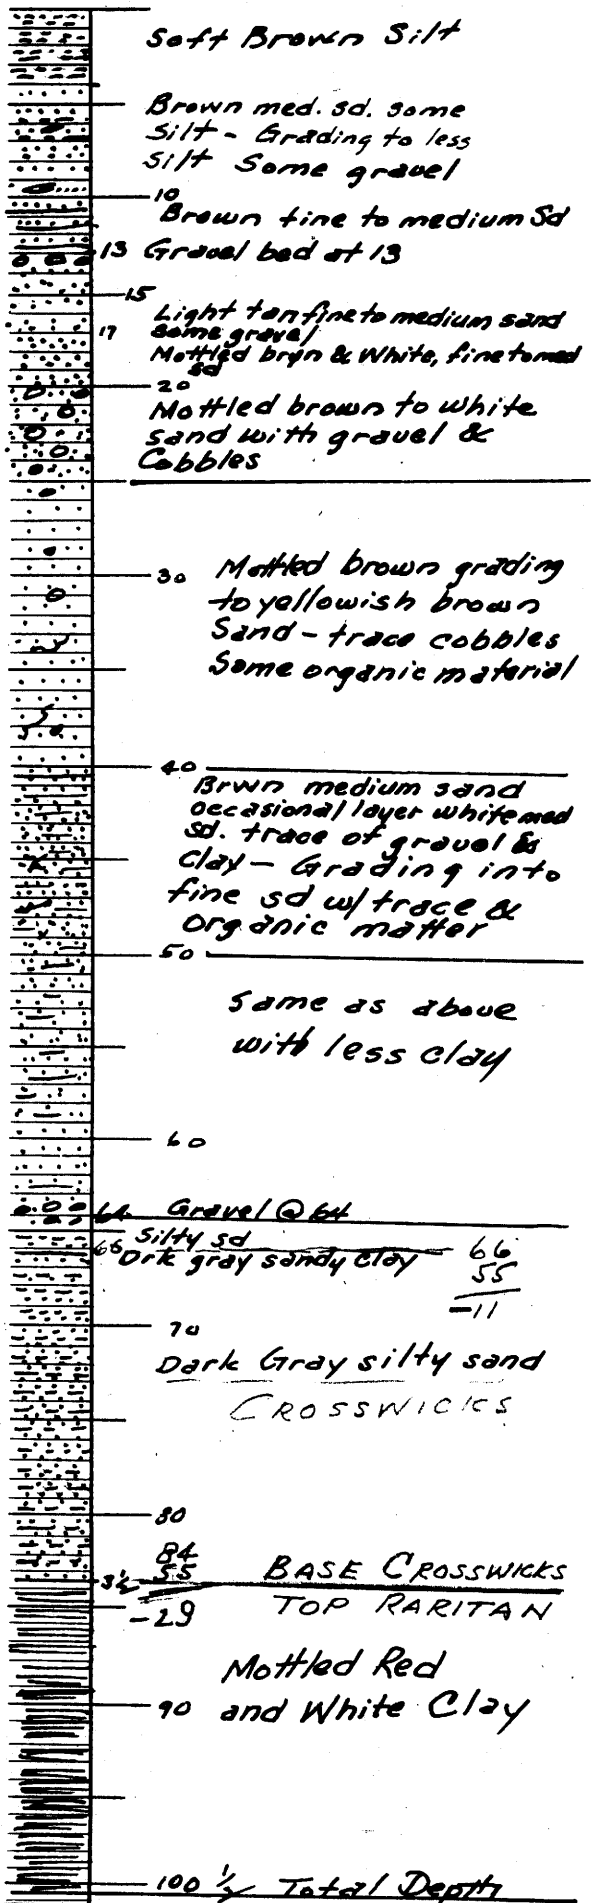 Soft Brown Silt
Brown med. sd. some
Silt - Grading to less
Silt Some gravel
10
Brown fine to medium Sd
13 Gravel bed at 13
15
Light tan fine to medium sand
17 some gravel
Mottled bryn & White, fine to med
sd
20
Mottled brown to white
sand with gravel &
Cobbles
30 Mottled brown grading
to yellowish brown
Sand - trace cobbles
Some organic material
40
Brwn medium sand
occasional layer white med
sd. trace of gravel &
Clay - Grading into
fine sd w/ trace &
Organic matter
50
Same as above
with less clay
60
64 Gravel @ 64
Silty sd
66 Drk gray sandy clay
66
55
-11
70
Dark Gray silty sand
CROSSWICKS
80
84
55
BASE CROSSWICKS
-29
TOP RARITAN
Mottled Red
90 and White Clay
100 1/2 Total Depth